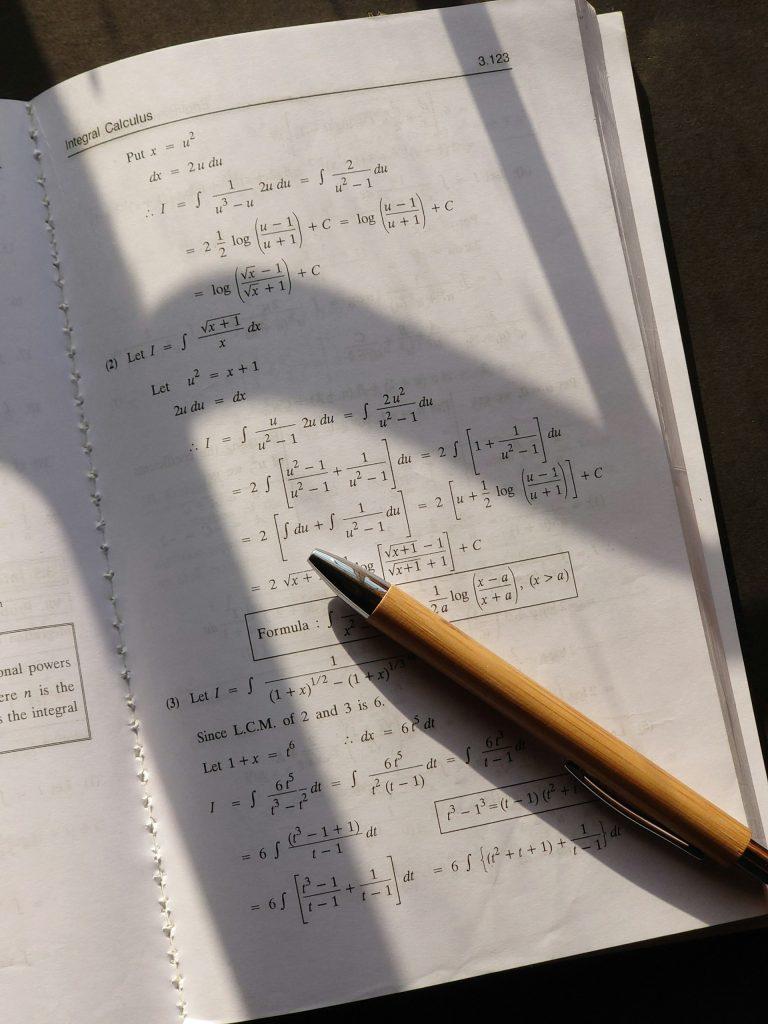 Integral Calculus 3.123
Put x = u²
dx = 2u du
∴ I = ∫ 1/(u³ − u) 2u du = ∫ 2/(u² − 1) du
= 2 1/2 log ((u − 1)/(u + 1)) + C = log ((u − 1)/(u + 1)) + C
= log ((√x − 1)/(√x + 1)) + C
(2) Let I = ∫ √(x + 1)/x dx
Let u² = x + 1
2u du = dx
∴ I = ∫ u/(u² − 1) 2u du = ∫ 2u²/(u² − 1) du
= 2 ∫ [(u² − 1)/(u² − 1) + 1/(u² − 1)] du = 2 ∫ [1 + 1/(u² − 1)] du
= 2 [∫ du + ∫ 1/(u² − 1) du] = 2 [u + 1/2 log ((u − 1)/(u + 1))] + C
= 2 √x + log [(√(x+1) − 1)/(√(x+1) + 1)] + C
Formula : ∫ x² 1/2a log ((x − a)/(x + a)), (x > a)
(3) Let I = ∫ 1/((1 + x)^1/2 − (1 + x)^1/3
Since L.C.M. of 2 and 3 is 6.
Let 1 + x = t⁶ ∴ dx = 6t⁵ dt
I = ∫ 6t⁵/(t³ − t²) dt = ∫ 6t⁵/(t² (t − 1)) dt = ∫ 6t³/(t − 1) dt
= 6 ∫ (t³ − 1 + 1)/(t − 1) dt
t³ − 1³ = (t − 1) (t² +
= 6 ∫ [(t³ − 1)/(t − 1) + 1/(t − 1)] dt = 6 ∫ {(t² + t + 1) + 1/(t − 1)} dt
onal powers
ere n is the
s the integral